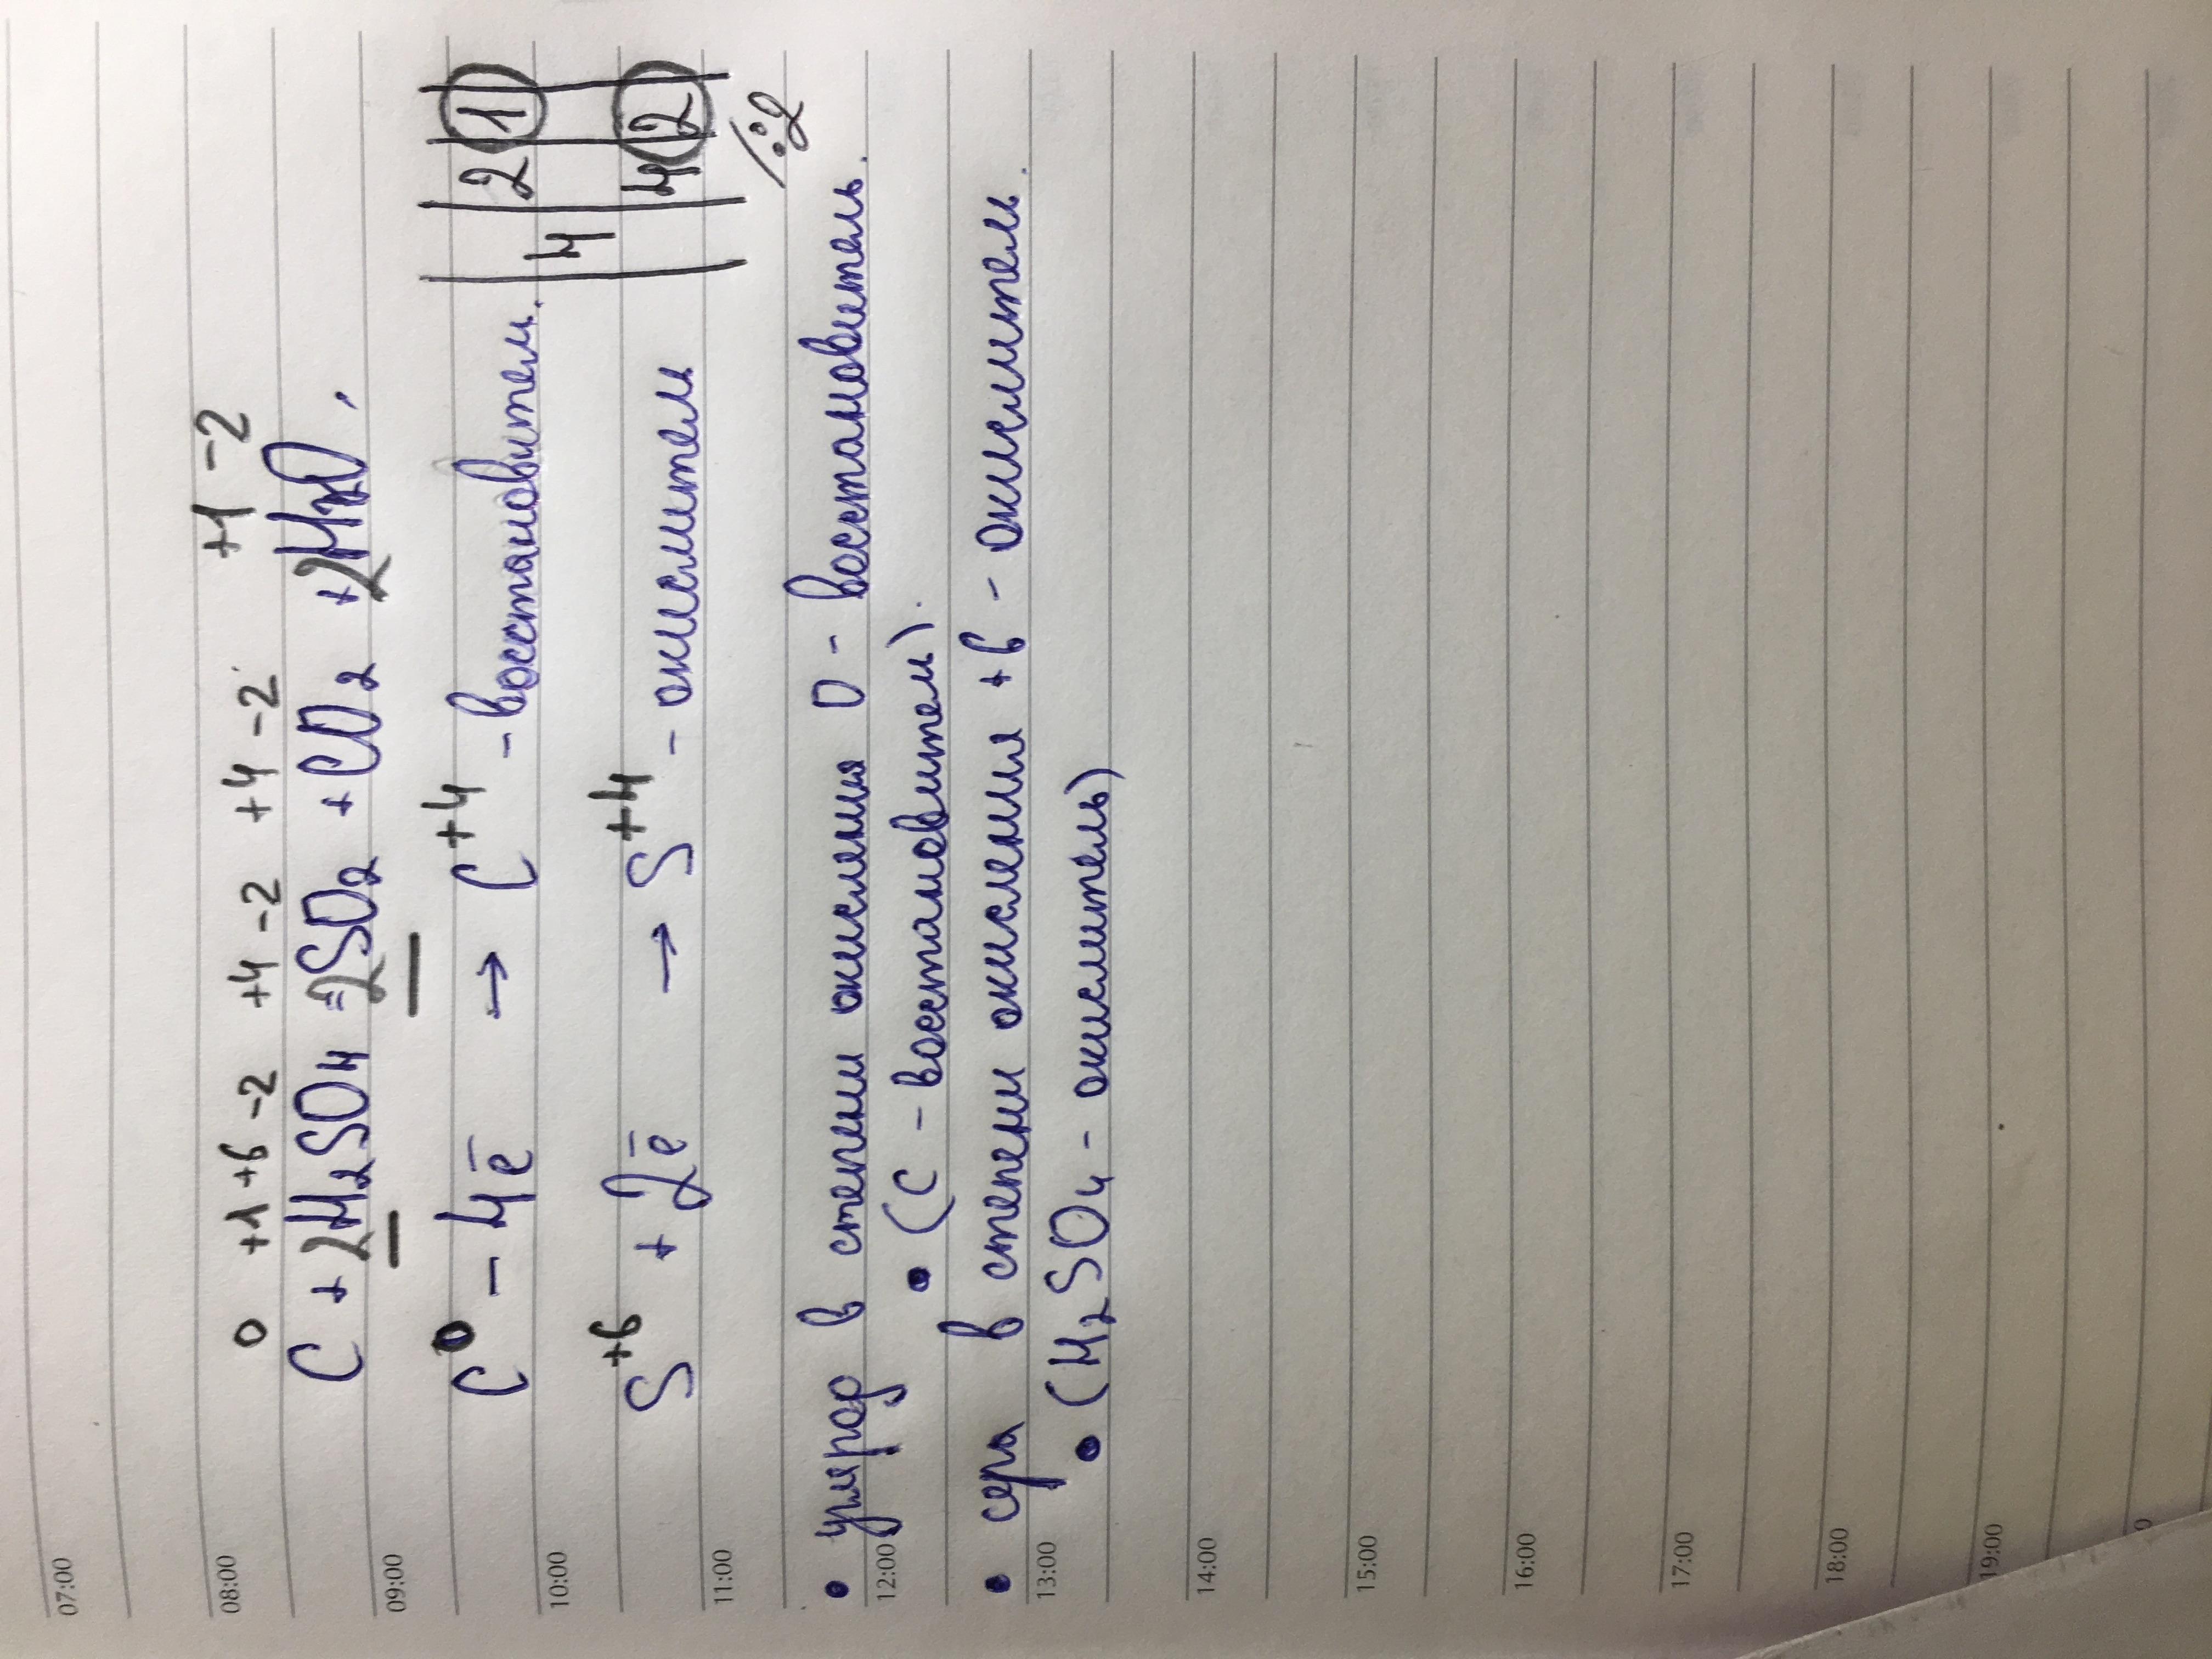 07:00
08:00
0 +1 +6 -2 +4 -2 +4 -2 +1 -2
C + 2H₂SO₄ = 2SO₂ + CO₂ + 2H₂O,
09:00
C⁰ - 4ē → C⁺⁴ - восстановител. | 4 | 2 | 1
10:00
S⁺⁶ + 2ē → S⁺⁴ - окислители | 4 | 2
11:00
/:2
• углерод в степени окисления 0 - восстановитель.
12:00
• (C - восстановители).
• сера в степени окисления +6 - окислители.
13:00
• (H₂SO₄ - окислитель)
14:00
15:00
16:00
17:00
18:00
19:00
0